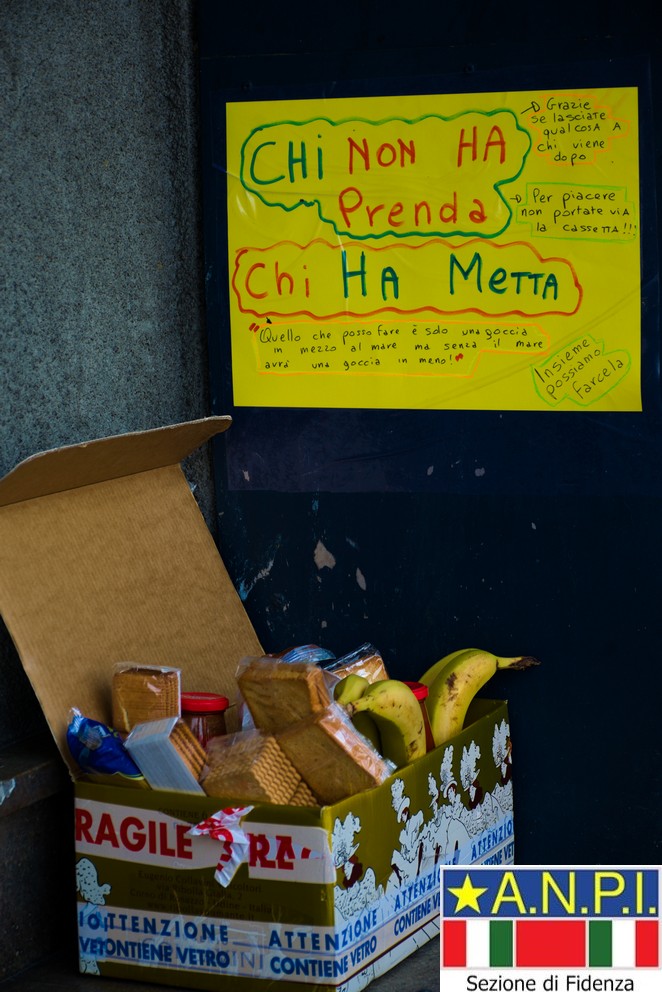 CHi NON HA
Prenda
Grazie
se lasciate
qualcosA A
chi viene
dopo
Per piacere
non portate viA
la cassetta!!!
Chi HA MeTTA
"Quello che posso fare è solo una goccia
in mezzo al mare ma senza il mare
avrà una goccia in meno!"
Insieme
possiamo
farcela
RAGILE
RA
ATTENZIONE
CONTIENE VETRO
ATTENZIONE
CONTIENE VETRO
ATTENZI
CONTIENE VE
ATTENZIONE
CONTIENE VETRO
A.N.P.I.
Sezione di Fidenza